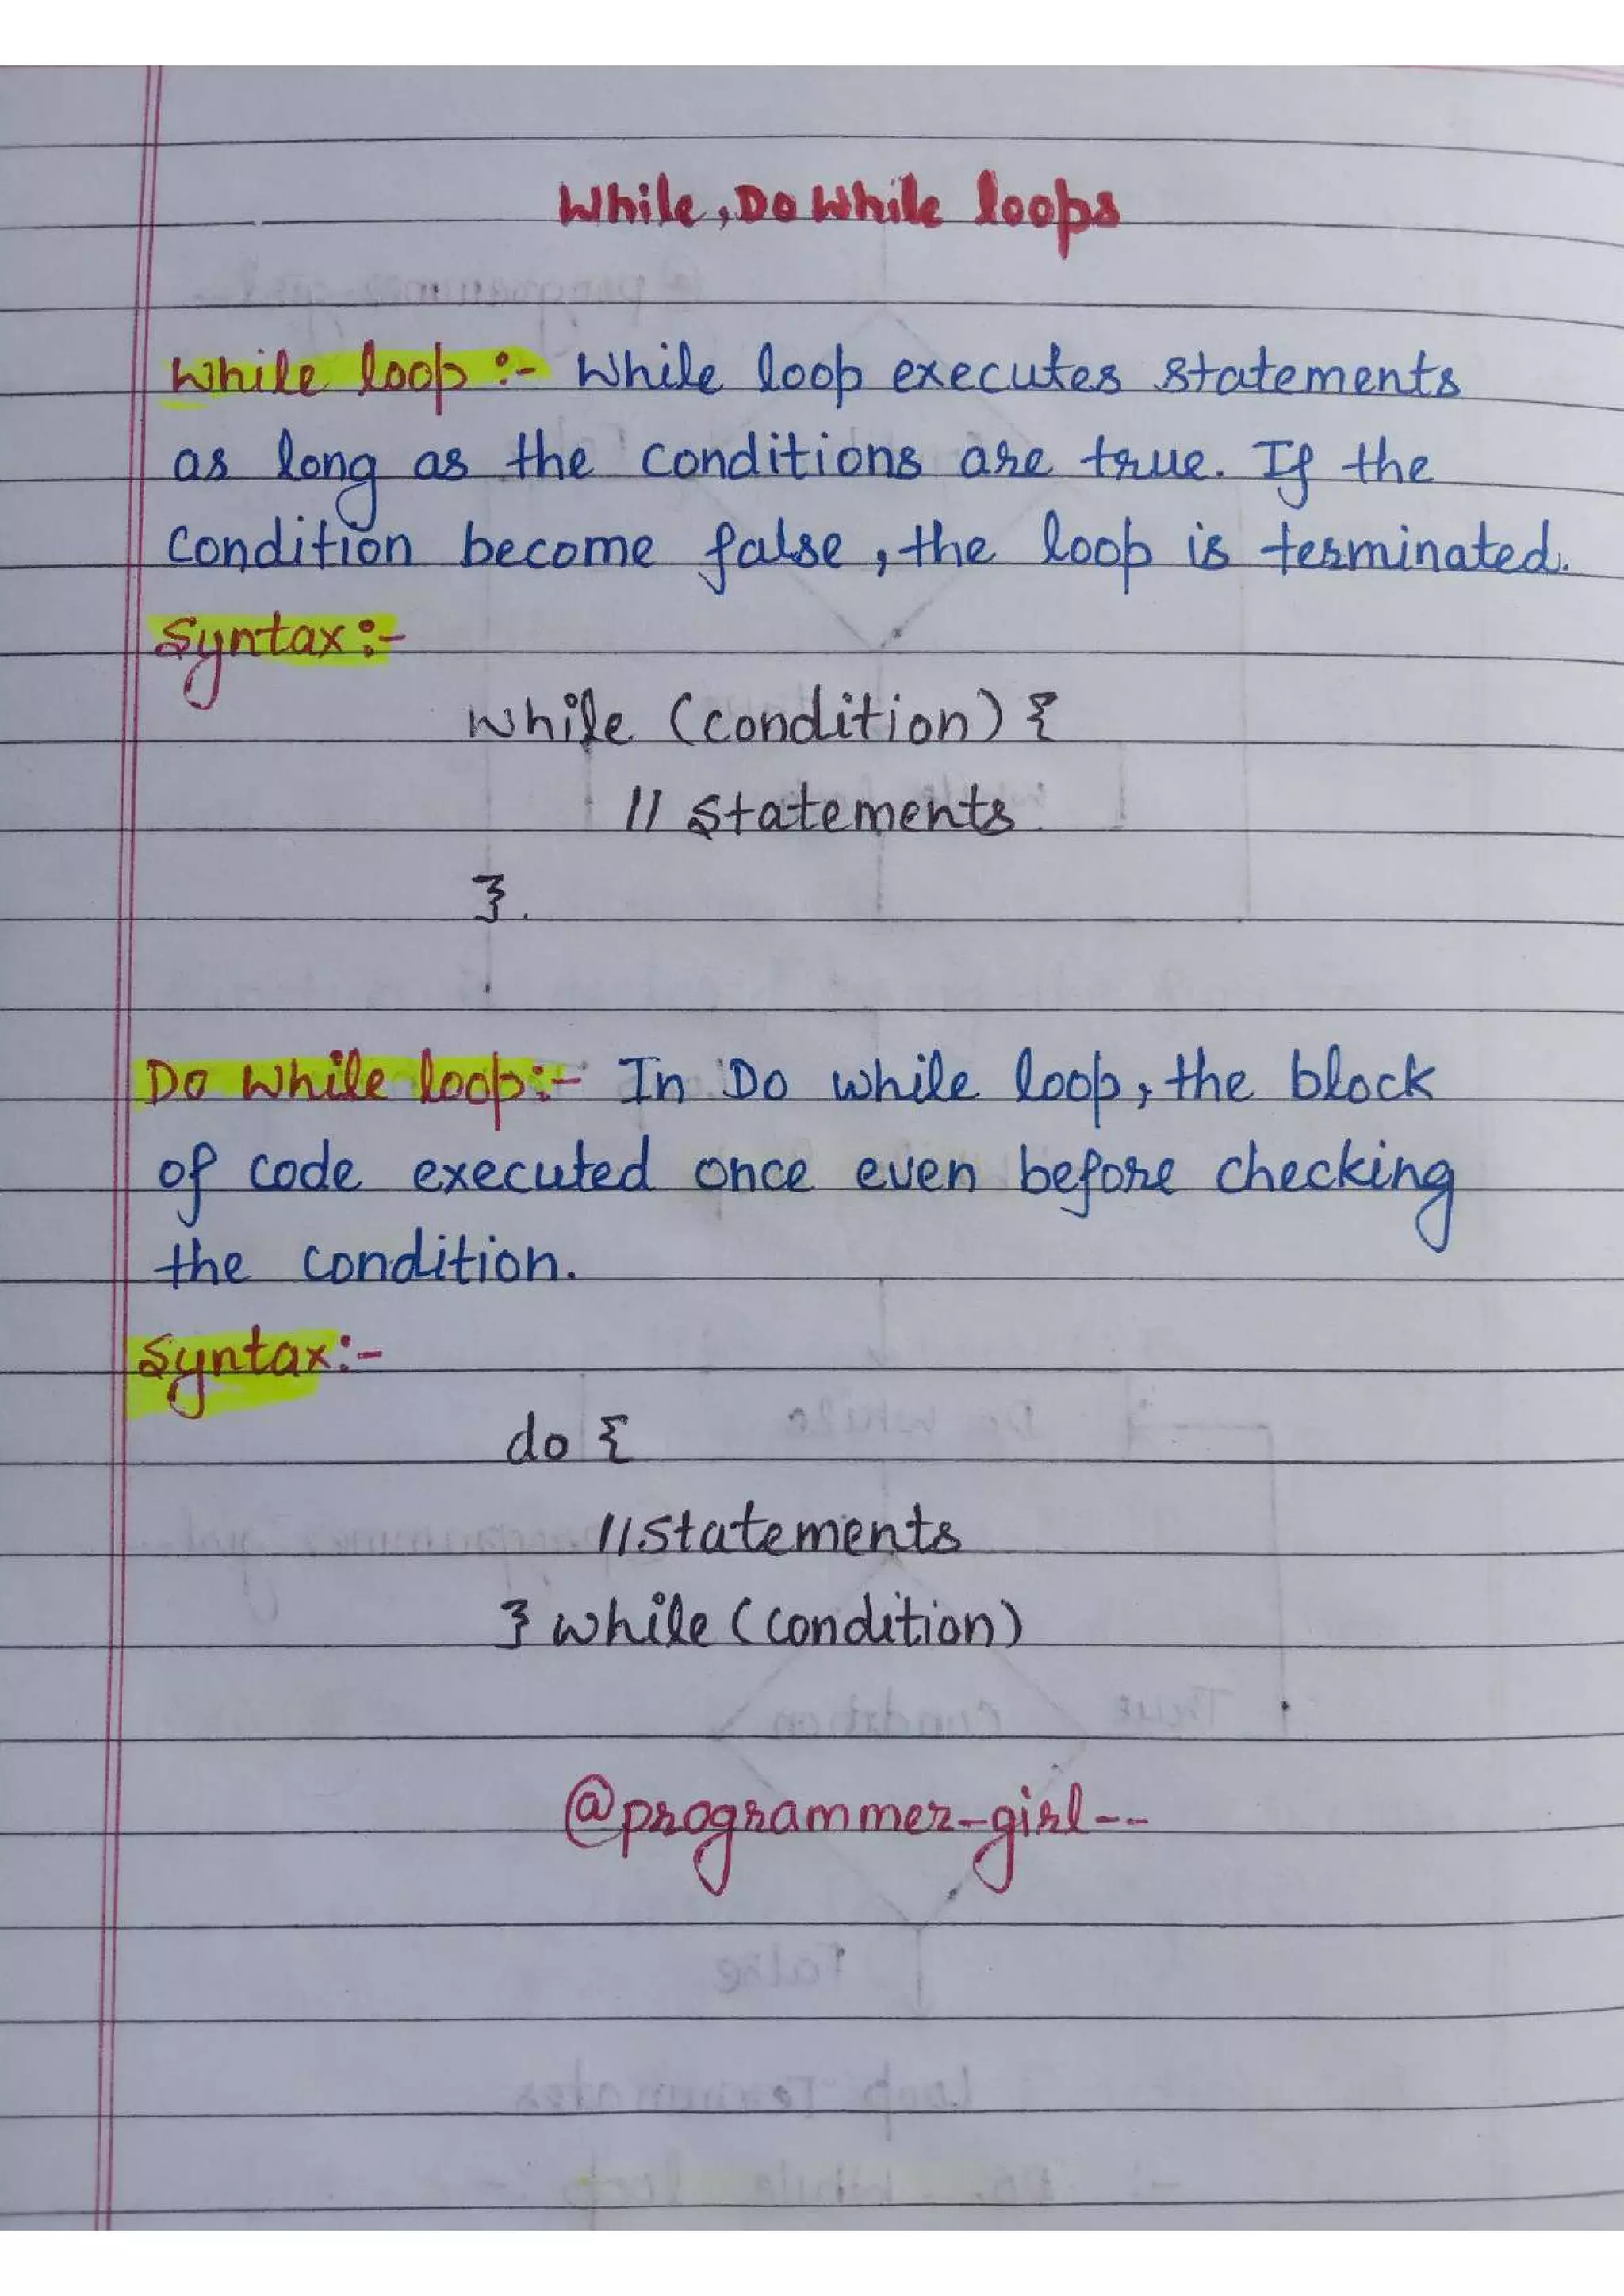 While, Do While loops
While loop :- While loop executes statements
as long as the conditions are true. If the
Condition become false, the loop is terminated.
Syntax :-
while (condition) {
// Statements
}.
Do While loop :- In Do while loop, the block
of code executed once even before checking
the condition.
Syntax :-
do {
// Statements
} while (condition)
@programmer-girl--